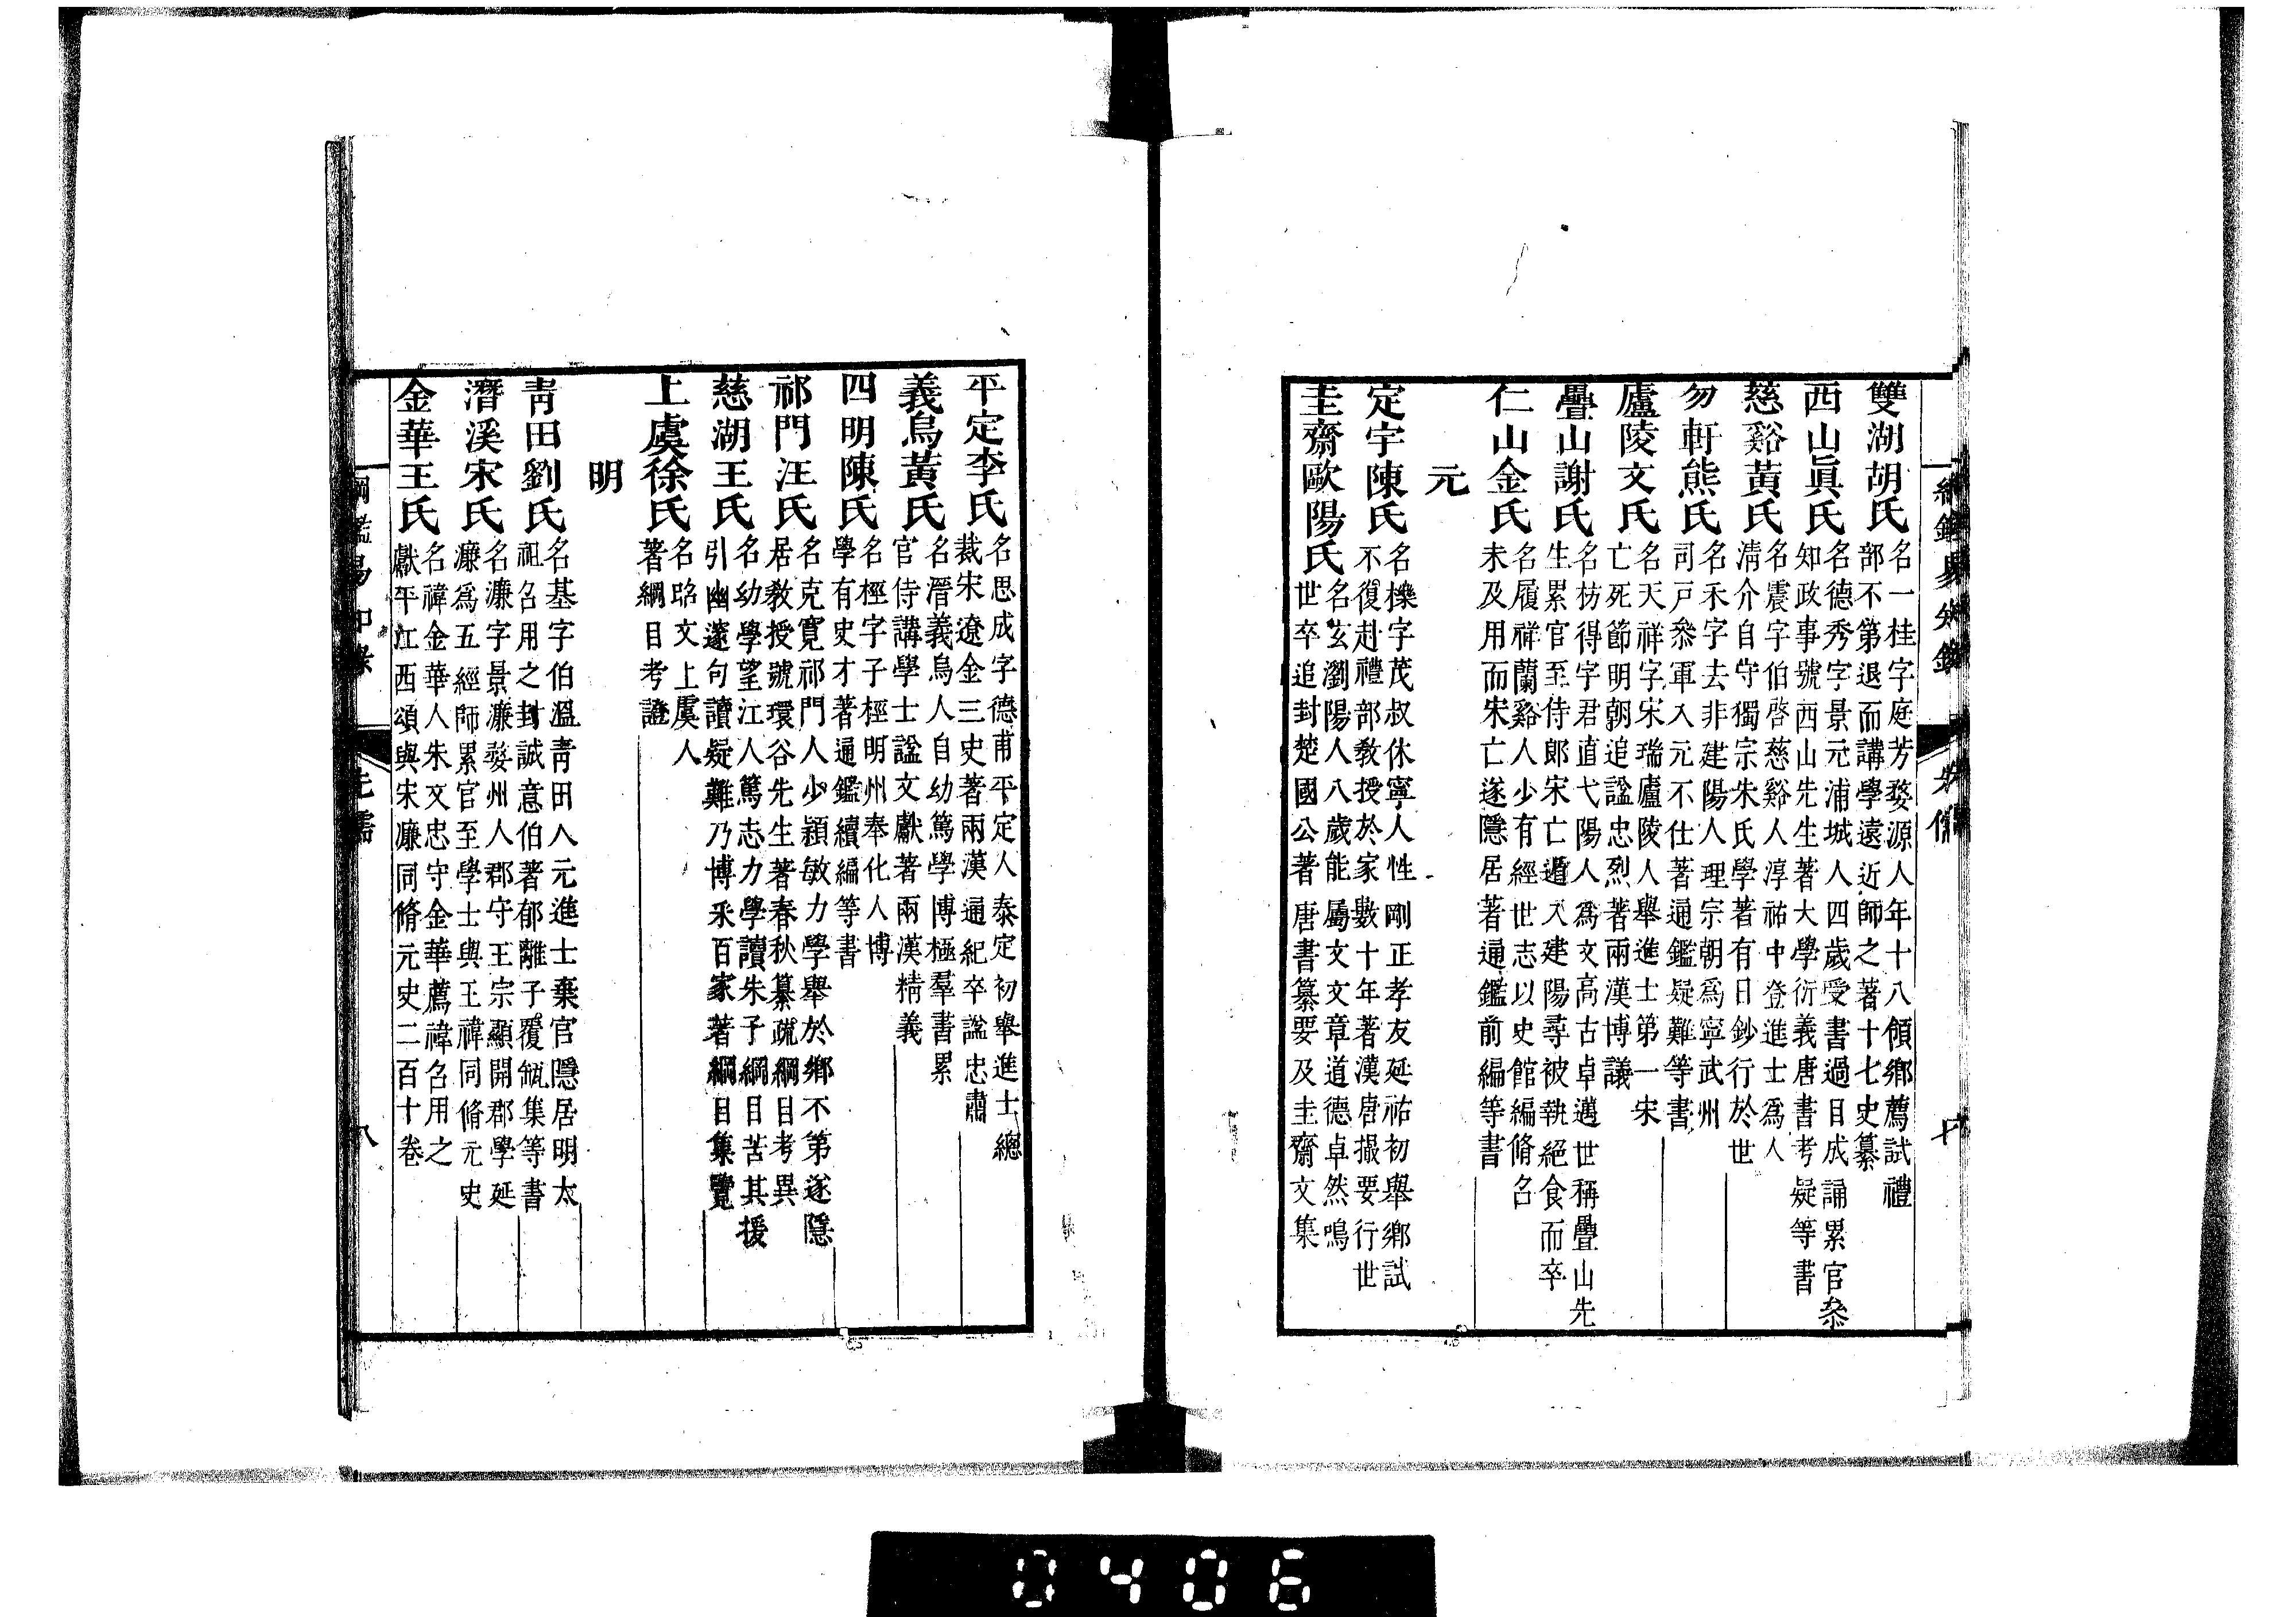 雙湖胡氏
名一桂字庭芳婺源人年十八領鄉薦試禮
部不第退而講學遠近師之著十七史纂
西山眞氏
名德秀字景元浦城人四歲受書過目成誦累官叅
知政事號西山先生著大學衍義唐書考疑等書
慈谿黃氏
名震字伯啓慈谿人淳祐中登進士爲人
淸介自守獨宗朱氏學著有日鈔行於世
勿軒熊氏
名禾字去非建陽人理宗朝爲寧武州
司戸叅軍入元不仕著通鑑疑難等書
廬陵文氏
名天祥字宋瑞廬陵人舉進士第一宋
亡死節明朝追諡忠烈著兩漢博議
疊山謝氏
名枋得字君直弋陽人爲文高古卓邁世稱疊山先
生累官至侍郎宋亡遁入建陽尋被執絕食而卒
仁山金氏
名履祥蘭谿人少有經世志以史館編脩召
未及用而宋亡遂隱居著通鑑前編等書
元
定宇陳氏
名櫟字茂叔休寧人性剛正孝友延祐初舉鄉試
不復赴禮部敎授於家數十年著漢唐撮要行世
圭齋歐陽氏
名玄瀏陽人八歲能屬文文章道德卓然鳴
世卒追封楚國公著唐書纂要及圭齋文集
平定李氏
名思成字德甫平定人泰定初舉進士總
裁宋遼金三史著兩漢通紀卒諡忠肅
義烏黃氏
名溍義烏人自幼篤學博極羣書累
官侍講學士諡文獻著兩漢精義
四明陳氏
名桱字子桱明州奉化人博
學有史才著通鑑續編等書
祁門汪氏
名克寬祁門人少穎敏力學舉於鄉不第遂隱
居敎授號環谷先生著春秋纂疏綱目考異
慈湖王氏
名幼學望江人篤志力學讀朱子綱目苦其援
引幽邃句讀疑難乃博采百家著綱目集覽
上虞徐氏
名昭文上虞人
著綱目考證
明
靑田劉氏
名基字伯溫靑田人元進士棄官隱居明太
祖召用之封誠意伯著郁離子覆瓿集等書
潛溪宋氏
名濂字景濂婺州人郡守王宗顯開郡學延
濂爲五經師累官至學士與王禕同脩元史
金華王氏
名禕金華人朱文忠守金華薦禕召用之
獻平江西頌與宋濂同脩元史二百十卷
綱鑑易知錄
先儒
八
0406